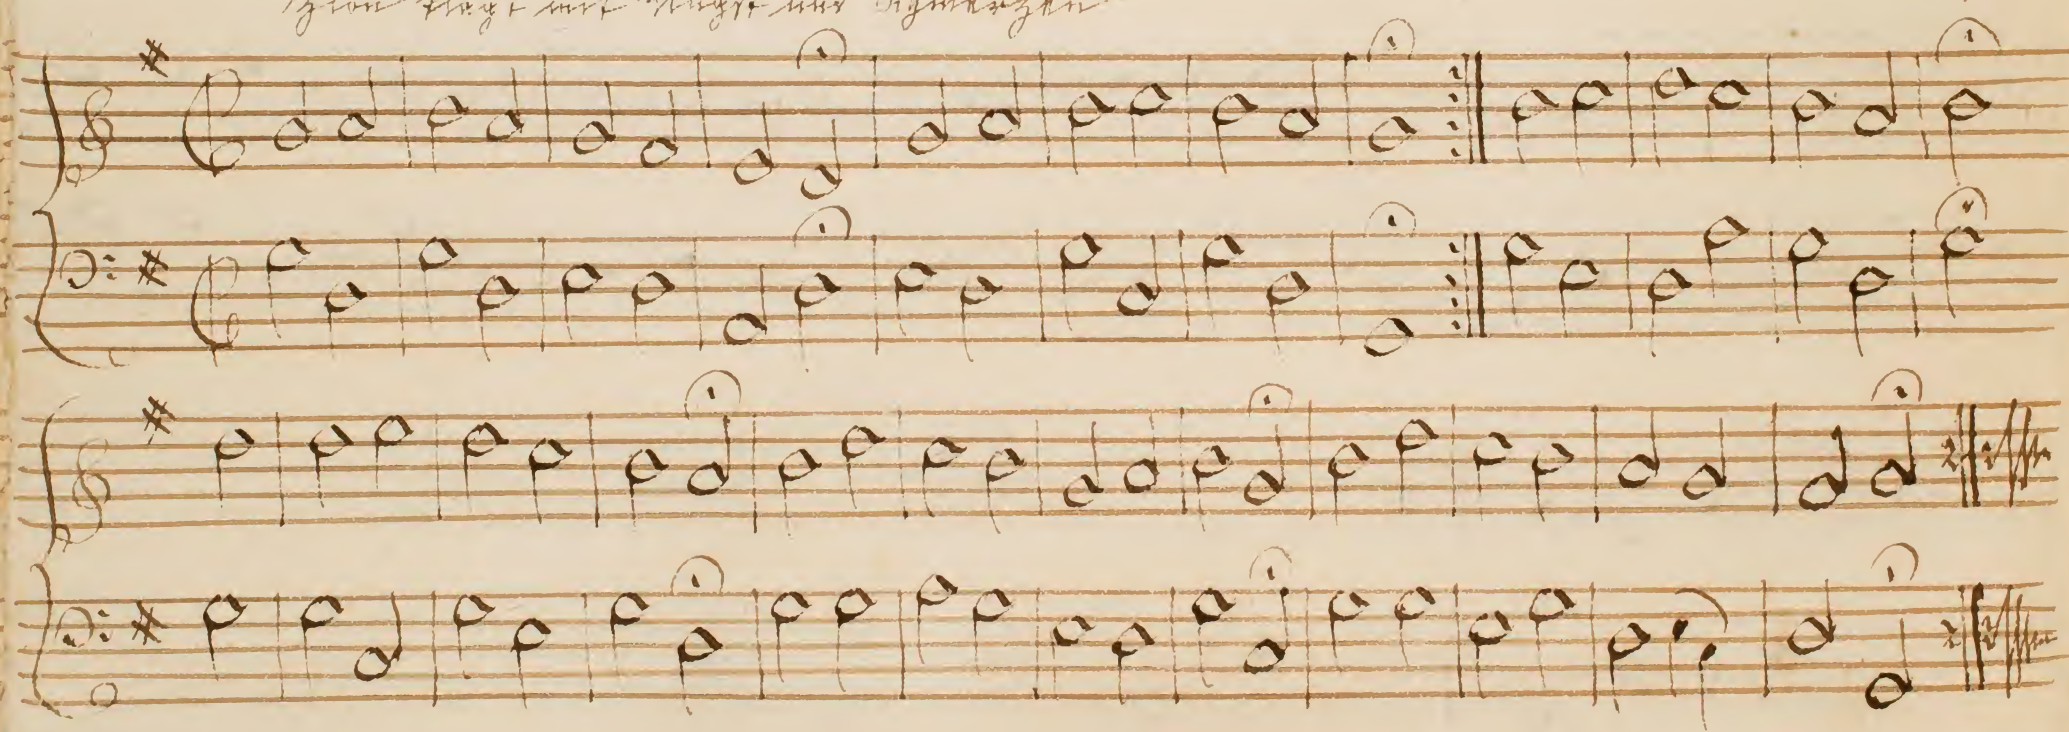 Zion klagt mit Angst und Schmerzen